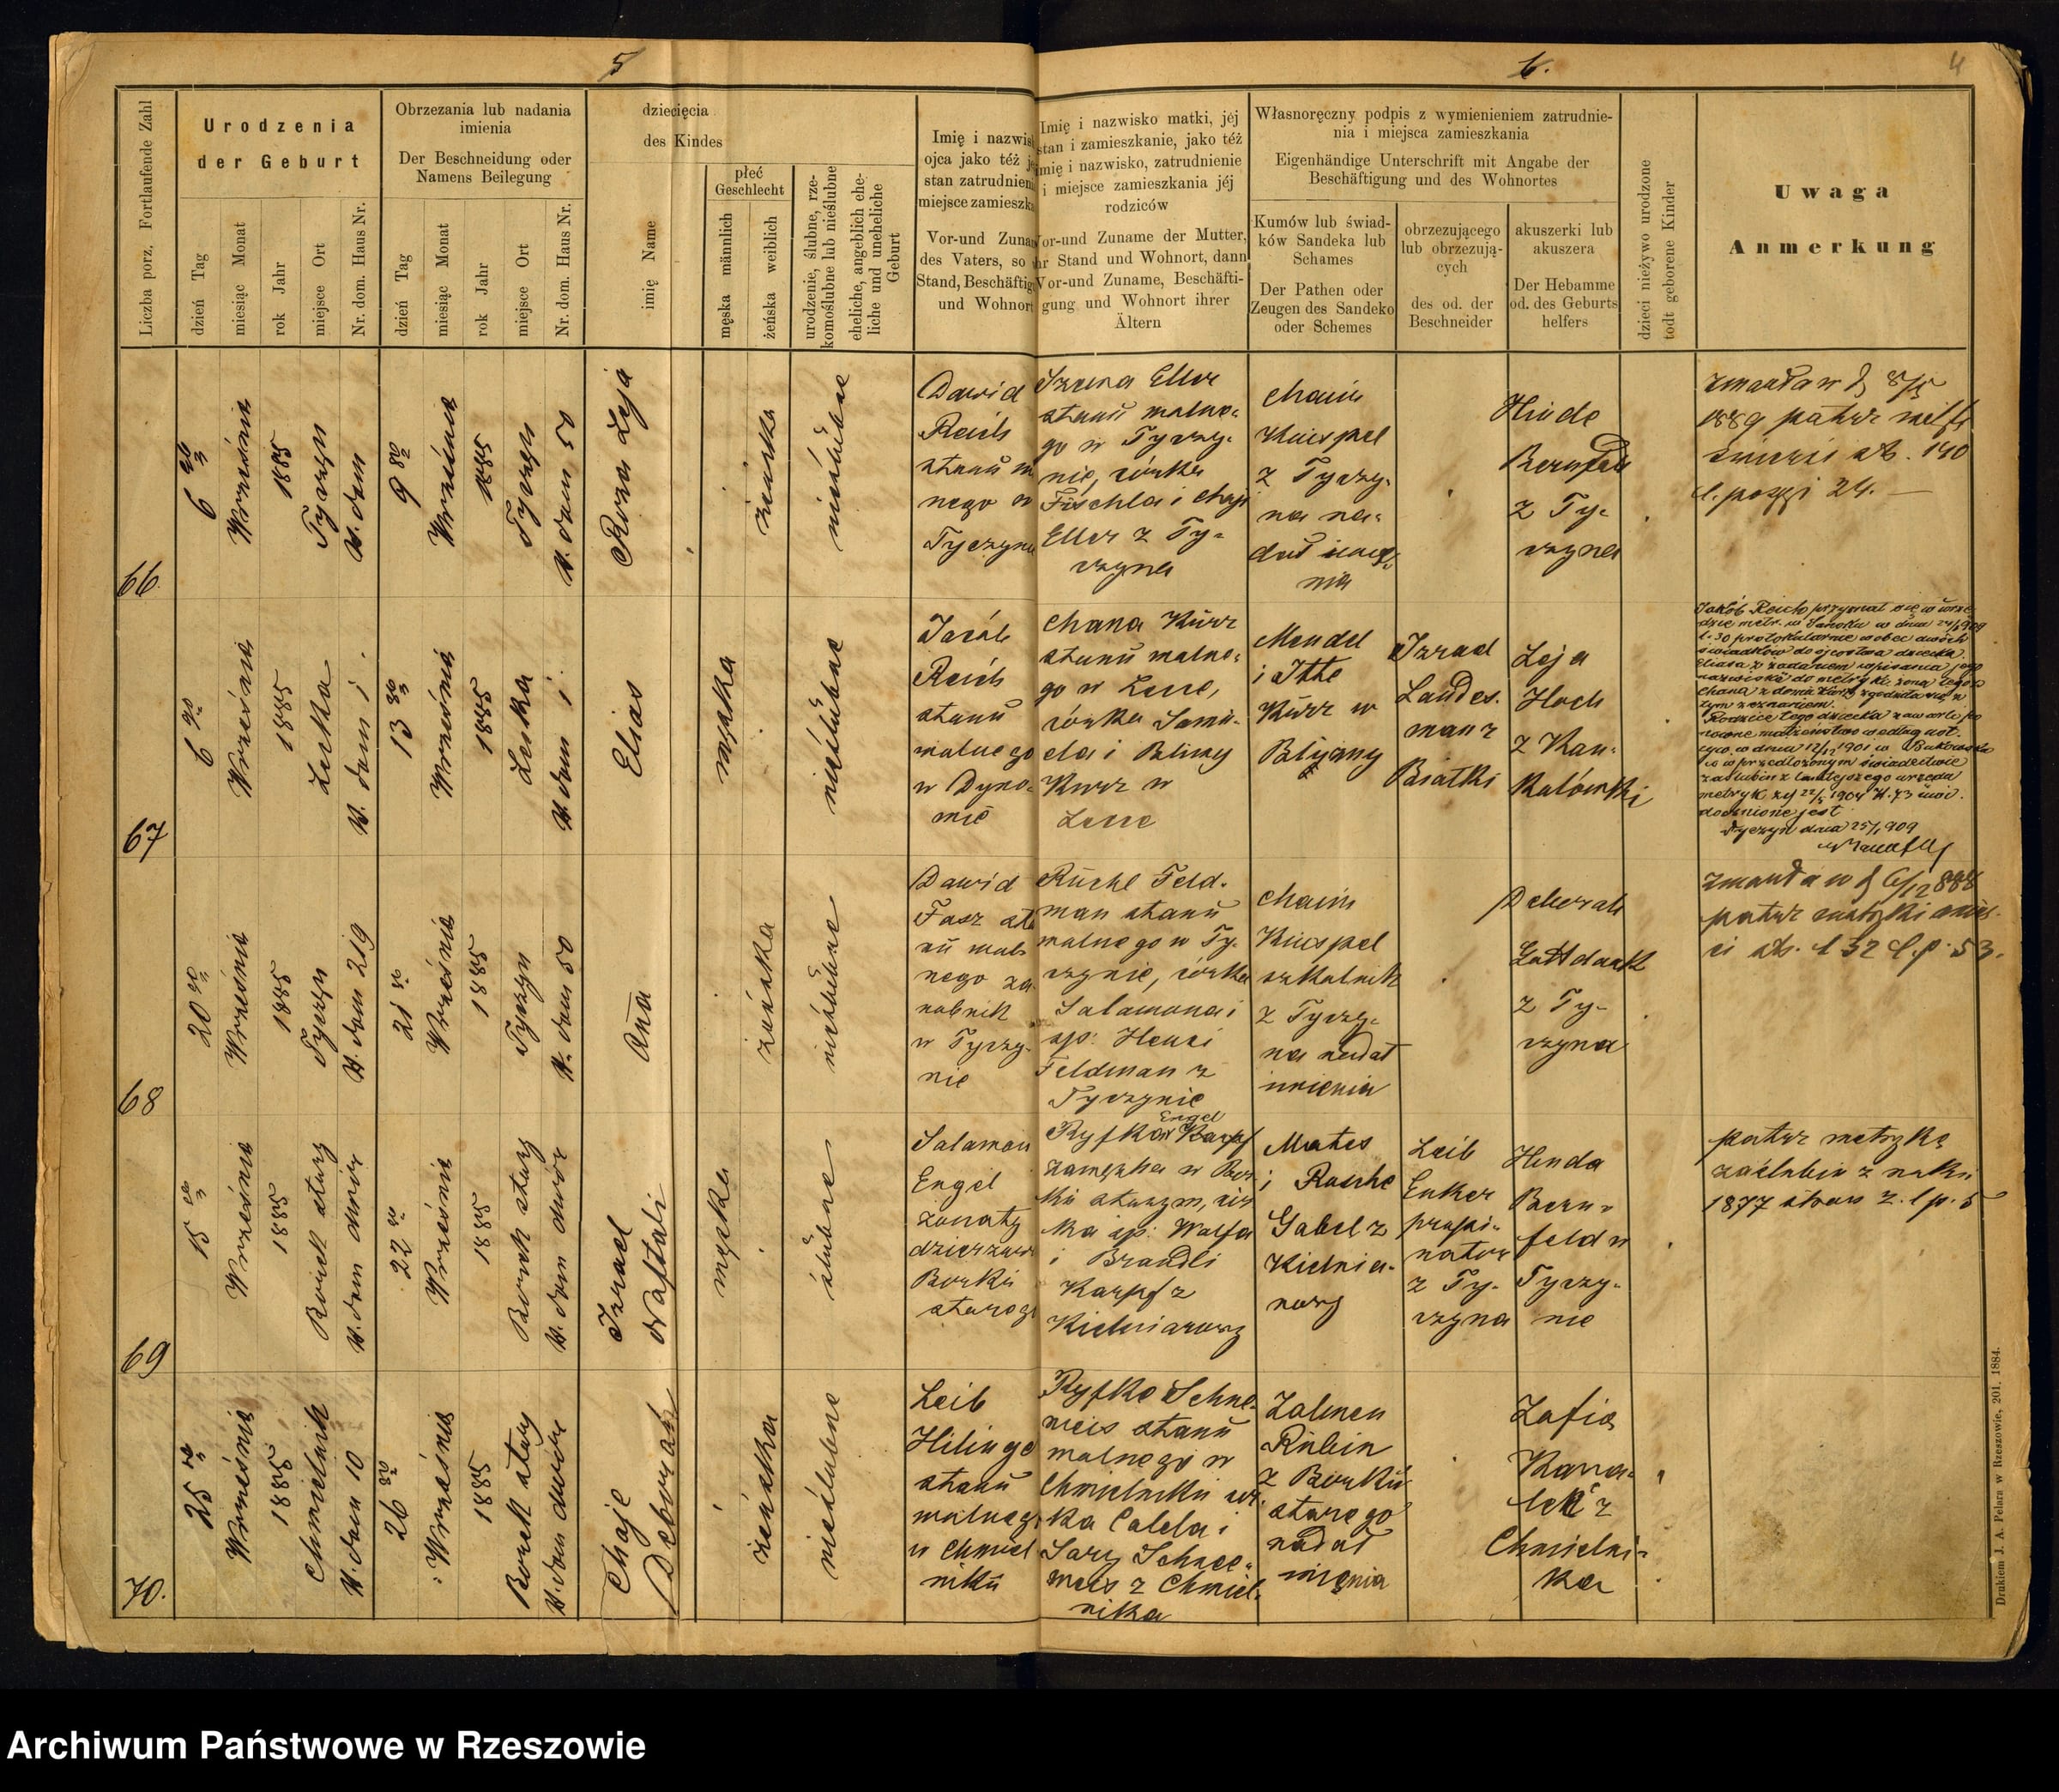 5
6.
4
Liczba porz. Fortlaufende Zahl
Urodzenia
der Geburt
dzień Tag
miesiąc Monat
rok Jahr
miejsce Ort
Nr. dom. Haus Nr.
Obrzezania lub nadania
imienia
Der Beschneidung oder
Namens Beilegung
dzień Tag
miesiąc Monat
rok Jahr
miejsce Ort
Nr. dom. Haus Nr.
dziecięcia
des Kindes
imię Name
płeć
Geschlecht
męska männlich
żeńska weiblich
urodzenie, ślubne, rze-
komoślubne lub nieślubne
eheliche, angeblich ehe-
liche und uneheliche
Geburt
Imię i nazwis
ojca jako też je
stan zatrudnieni
miejsce zamieszka
Vor-und Zunam
des Vaters, so
Stand, Beschäftig
und Wohnort
Imię i nazwisko matki, jéj
stan i zamieszkanie, jako téż
imię i nazwisko, zatrudnienie
i miejsce zamieszkania jéj
rodziców
Vor-und Zuname der Mutter,
ihr Stand und Wohnort, dann
Vor-und Zuname, Beschäfti-
gung und Wohnort ihrer
Ältern
Własnoręczny podpis z wymienieniem zatrudnie-
nia i miejsca zamieszkania
Eigenhändige Unterschrift mit Angabe der
Beschäftigung und des Wohnortes
Kumów lub świad-
ków Sandeka lub
Schames
Der Pathen oder
Zeugen des Sandeko
oder Schemes
obrzezującego
lub obrzezują-
cych
des od. der
Beschneider
akuszerki lub
akuszera
Der Hebamme
od. des Geburts
helfers
dzieci nieżywo urodzone
todt geborene Kinder
Uwaga
Anmerkung
66.
6
Września
1885
Tyczyn
N. dom
9
Września
1885
Tyczyn
N. dom 50
Roza Leja
żeńska
nieślubne
Dawid
Reich
stanu w
nego w
Tyczynie
Szewa Eller
stanu wolne-
go w Tyczy-
nie, córka
Fischla i Chaji
Eller z Ty-
czyna
Chaim
Knispel
z Tyczy-
na na-
dał imię-
nia
Hinde
Bernfeld
z Ty-
czyna
zmarła w d 8/5
1889 patrz
śmierci str. 140
l. pozyi 24.
67
6
Września
1885
Lecka
N. dom 1
13
Września
1885
Lecka
N. dom 1
Elias
męska
nieślubne
Jacób
Reich
stanu
wolnego
w Dyno-
wie
Chana Kurz
stanu wolne-
go w Lecce,
córka Samu-
ela i Bliny
Kurz w
Lecce
Mendel
i Itte
Kurz w
Błażowy
Izrael
Landes-
man z
Białki
Leja
Hoch
z Kan-
kolówki
Jakób Reich przyznał się w urzę-
dzie metr. w Sanoku w dniu 24/1 909
l. 30 protokolarnie wobec dwóch
świadków do ojcostwa dziecka
Eliasa z żądaniem wpisania jego
nazwiska do metryki, żona tegoż
Chana z domu Kurz zgodziła się z
tym zeznaniem.
Rodzice tego dziecka zawarli po
nowne małżeństwo według
w dniu 12/12 1901 w Bukowsku
co w przedłożonym świadectwie
zaślubin z tamtejszego urzędu
metryk. 1904 N. 73 uwi-
docznione jest
Tyczyn dnia 25/1 909
68
20
Września
1885
Tyczyn
N. dom 219
21
Września
1885
Tyczyn
N. dom 50
Ana
żeńska
nieślubne
Dawid
Fasz sta
nu wol-
nego za-
robnik
w Tyczy-
nie
Ruchl Feld-
man stanu
wolnego w Ty-
czynie, córka
Salamona i
śp: Henci
Feldman z
Tyczynie
Chaim
Knispel
szkolnik
z Tyczy-
na nadał
imienia
Deborah
z Ty-
czyna
zmarła w d 6/12 888
patrz metryki śmier-
ci str. 132 l.p. 53.
69
15
Września
1885
Borek stary
N. dom dwór
22
Września
1885
Borek stary
N. dom dwór
Izrael
Naftali
męska
ślubne
Salamon
Engel
żonaty
dzierżawca
Borku
starego
Engel
Ryfka Karpf
zamężna w Bor-
ku starym, cór
ka śp: Wolfa
i Brandli
Karpf z
Kielnarowy
Mates
i Rasche
Gabel z
Kielna-
rowy
Leib
Enker
propi-
nator
z Ty-
czyna
Hinda
Bern-
feld w
Tyczy-
nie
patrz metrykę
zaślubin z roku
1877 stron 2. lp. 5
70.
25
Września
1885
Chmielnik
N. dom 10
26
Września
1885
Borek stary
N. dom dwór
Chaje
Deborah
żeńska
nieślubne
Leib
Hilinge
stanu
wolnego
w Chmiel
niku
Ryfke Schne-
weis stanu
wolnego w
Chmielniku cór-
ka Calela i
Sary Schnee-
weis z Chmiel-
nika
Zalmen
Rubin
z Borku
starego
nadał
imienia
Zofia
Kowa-
lek z
Chmielni-
ka
Drukiem J. A. Pelara w Rzeszowie, 201. 1884.
Archiwum Państwowe w Rzeszowie